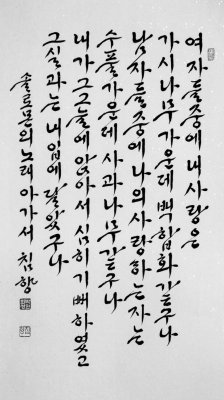 여자들중에 내사랑은
가시나무가운데 백합화같구나
남자들중에 나의사랑하는자는
수풀가운데 사과나무같구나
내가 그그늘에 앉아서 심히기뻐하였고
그실과는 내입에 달았구나
솔로몬의노래 아가서 침향